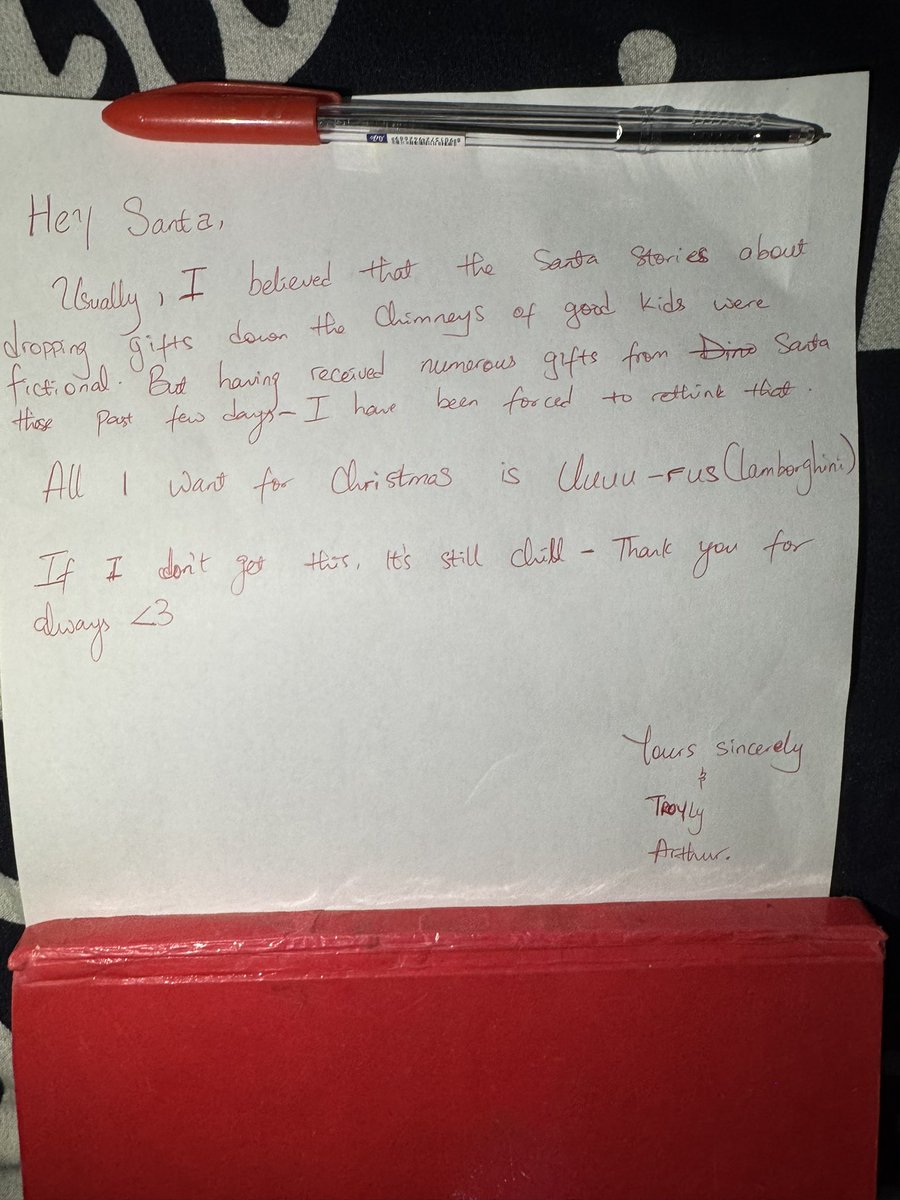 Hey Santa,
Usually, I believed that the Santa Stories about
dropping gifts down the Chimneys of good kids were
fictional. But having received numerous gifts from Dino Santa
those past few days - I have been forced to rethink that.
All I want for Christmas is Uuuu-rus (Lamborghini)
If I don't get this, It's still chill - Thank you for
always <3
Yours sincerely
&
Troyly
Arthur.